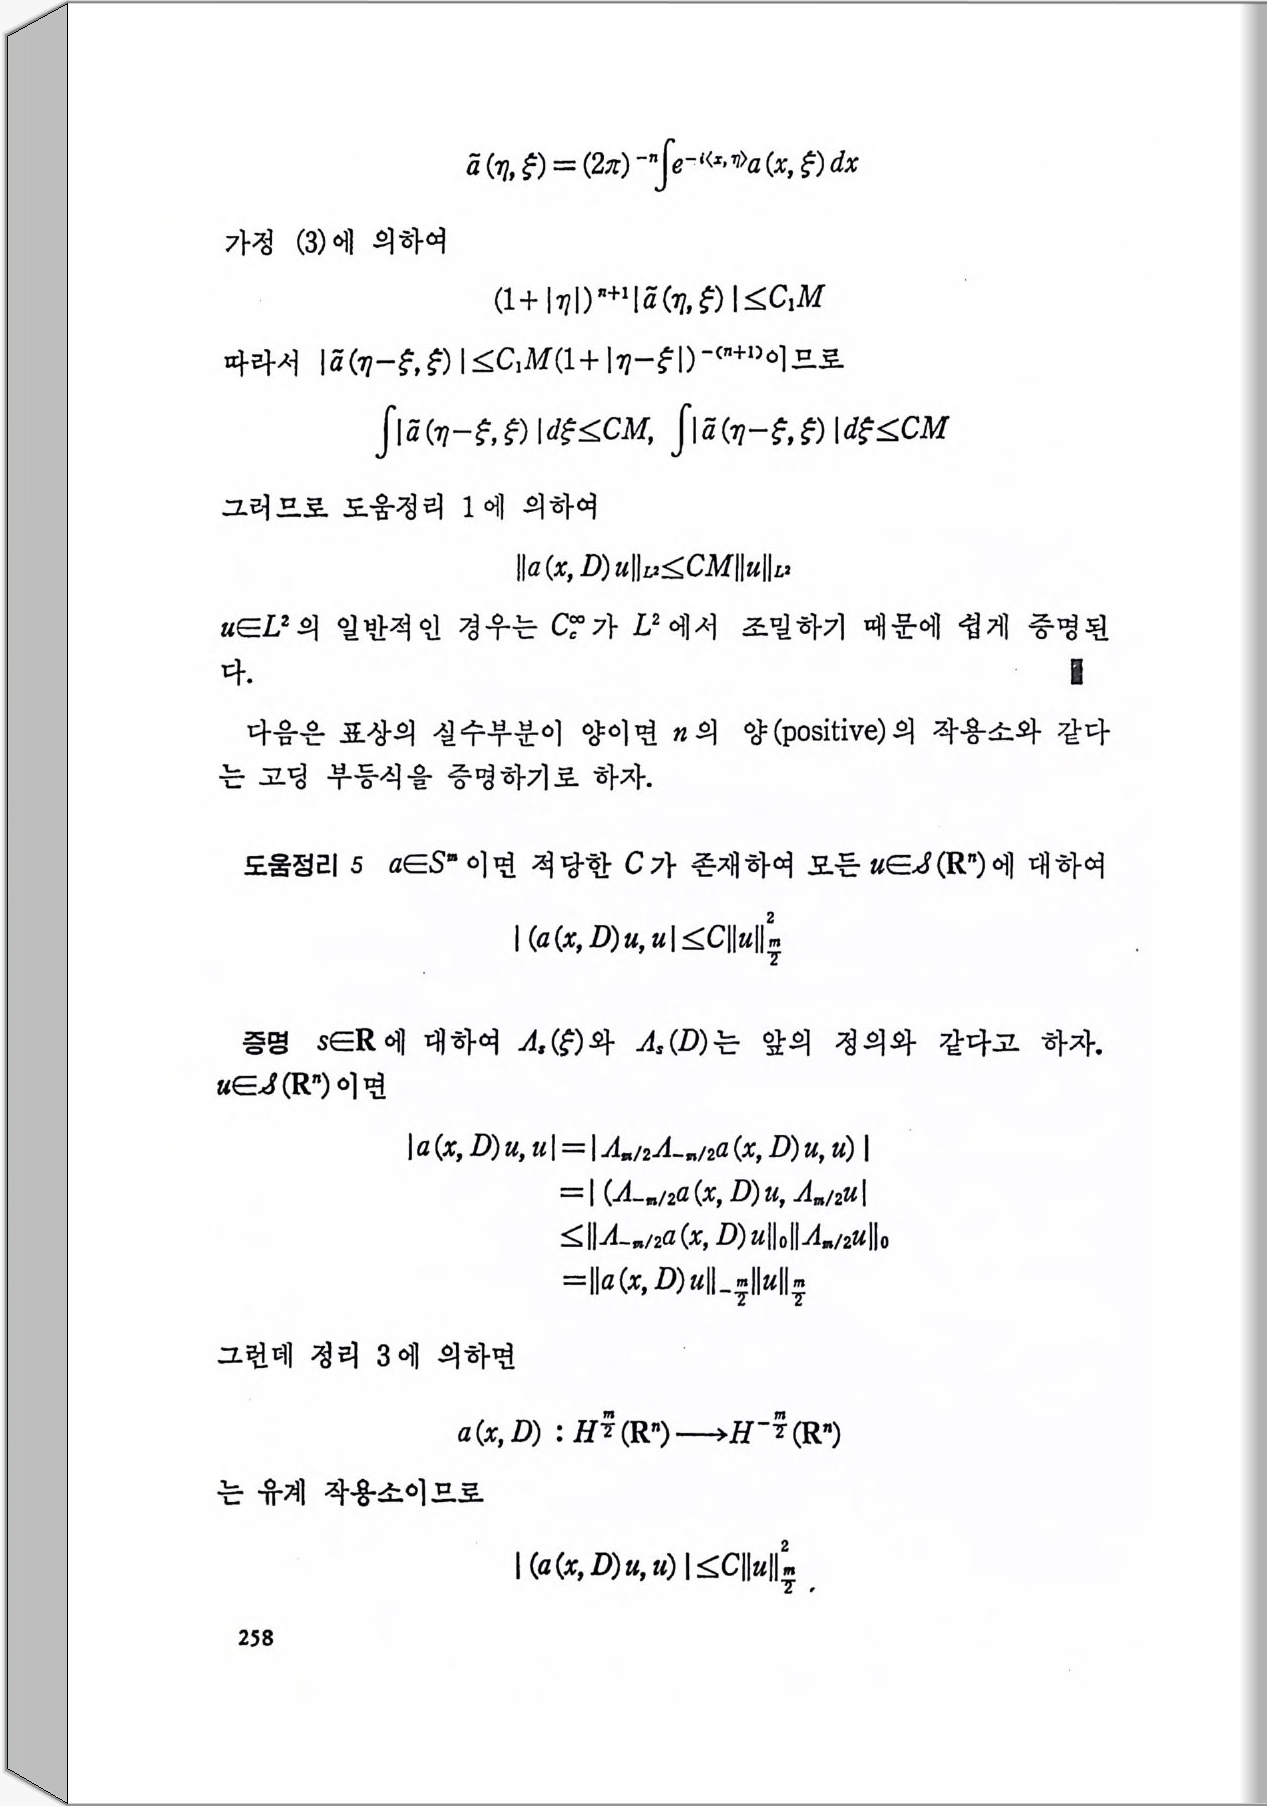 ã(η, ξ)=(2π)⁻ⁿ∫e^{-i⟨x, η⟩}a(x, ξ)dx
가정 (3)에 의하여
(1+|η|)ⁿ⁺¹|ã(η, ξ)|≤C₁M
따라서 |ã(η−ξ, ξ)|≤C₁M(1+|η−ξ|)^{-(n+1)}이므로
∫|ã(η−ξ, ξ)|dξ≤CM, ∫|ã(η−ξ, ξ)|dξ≤CM
그러므로 도움정리 1에 의하여
‖a(x, D)u‖_{L²}≤CM‖u‖_{L²}
u∈L²의 일반적인 경우는 C_c^∞가 L²에서 조밀하기 때문에 쉽게 증명된
다. ▮
다음은 표상의 실수부분이 양이면 n의 양(positive)의 작용소와 같다
는 고딩 부등식을 증명하기로 하자.
도움정리 5 a∈Sᵐ이면 적당한 C가 존재하여 모든 u∈𝒮(Rⁿ)에 대하여
|(a(x, D)u, u|≤C‖u‖²_{m/2}
증명 s∈R에 대하여 Λₛ(ξ)와 Λₛ(D)는 앞의 정의와 같다고 하자.
u∈𝒮(Rⁿ)이면
|a(x, D)u, u|=|Λ_{m/2}Λ_{-m/2}a(x, D)u, u)|
=|(Λ_{-m/2}a(x, D)u, Λ_{m/2}u|
≤‖Λ_{-m/2}a(x, D)u‖₀‖Λ_{m/2}u‖₀
=‖a(x, D)u‖_{-m/2}‖u‖_{m/2}
그런데 정리 3에 의하면
a(x, D) : H^{m/2}(Rⁿ)⟶H^{-m/2}(Rⁿ)
는 유계 작용소이므로
|(a(x, D)u, u)|≤C‖u‖²_{m/2}.
258